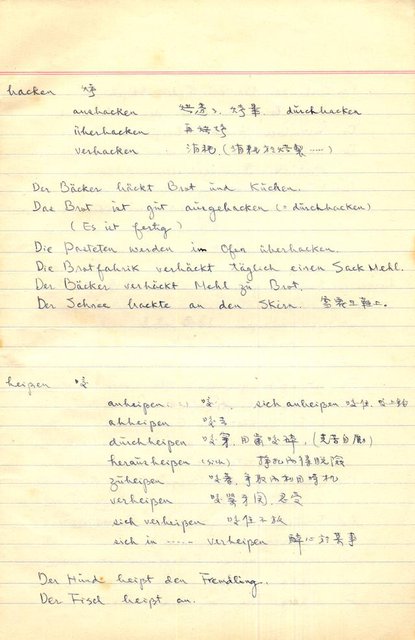 backen 烤
ausbacken 烘透了, 烤熟, durchbacken
überbacken 再烘烤
verbacken 消耗 (消耗於焙製 ......)
Der Bäcker bäckt Brot und Kuchen.
Das Brot ist gut ausgebacken (= durchbacken)
(Es ist fertig)
Die Pasteten werden im Ofen überbacken.
Die Brotfabrik verbäckt täglich einen Sack Mehl.
Der Bäcker verbäckt Mehl zu Brot.
Der Schnee backte an den Skiern. 雪 上。
beißen 咬
anbeißen 咬, sich anbeißen 咬住,
abbeißen 咬去
durchbeißen 咬穿, 用齒咬碎, (克苦自勵)
herausbeißen (sich) 掙扎而得脫險
zubeißen 咬着, 爭取而利用時机
verbeißen 咬緊牙関, 忍受
sich verbeißen 咬住不放
sich in ...... verbeißen 醉心於某事
Der Hund beißt den Fremdling.
Der Fisch beißt an.